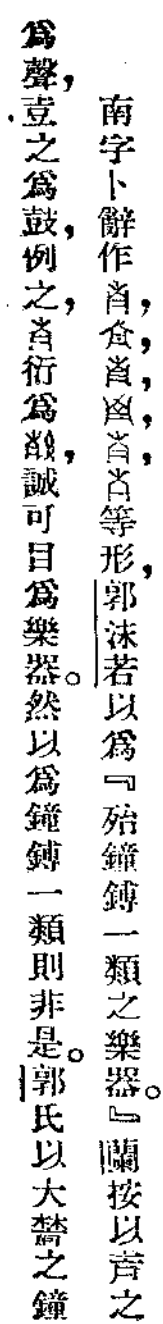 南字卜辭作等形，郭沫若以爲『殆鐘鎛一類之樂器。』蘭按以声之
爲聲，壴之爲鼓，例之，衍爲，誠可目爲樂器。然以爲鐘鎛一類則非是。郭氏以大替之鐘